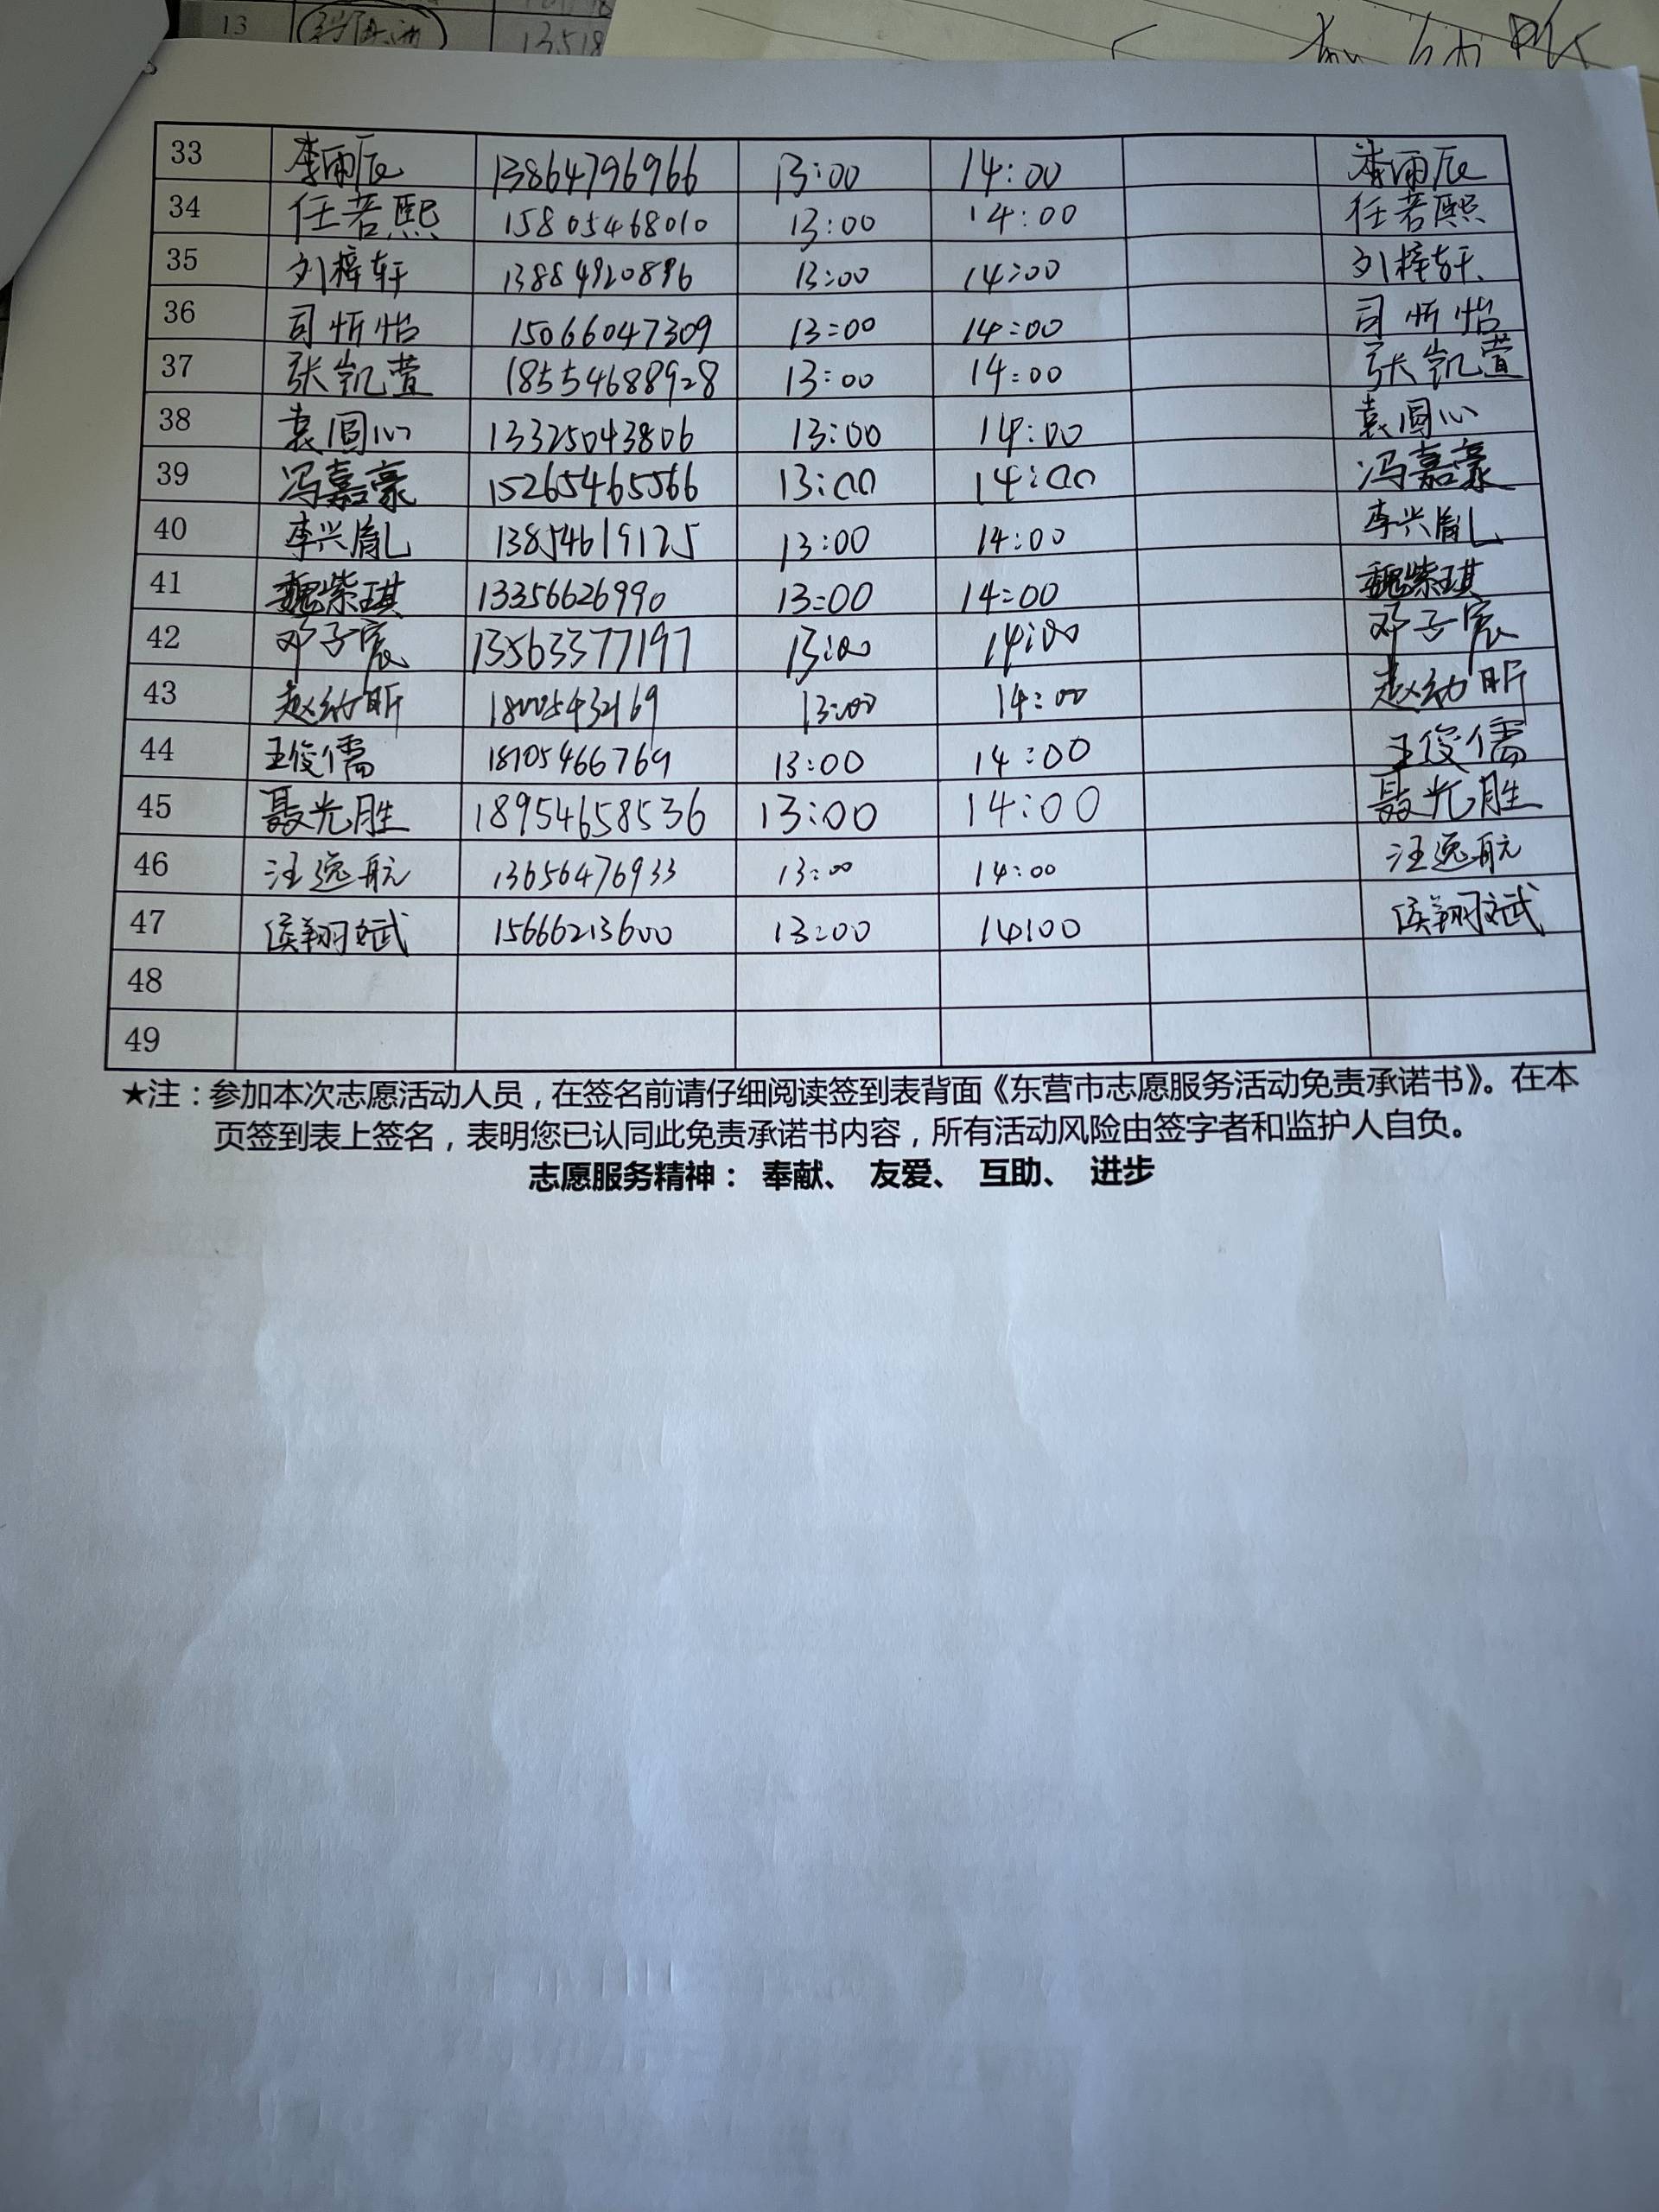 13 13518
33 李雨辰 13864796966 13:00 14:00 李雨辰
34 任若熙 15805468010 13:00 14:00 任若熙
35 刘梓轩 13884920896 13:00 14:00 刘梓轩
36 司忻怡 15066047309 13:00 14:00 司忻怡
37 张凯萱 18554688928 13:00 14:00 张凯萱
38 袁圆心 13325043806 13:00 14:00 袁圆心
39 冯嘉豪 15265465566 13:00 14:00 冯嘉豪
40 李兴胤 13854619125 13:00 14:00 李兴胤
41 魏紫琪 13356626990 13:00 14:00 魏紫琪
42 邓子宸 13563377197 13:00 14:00 邓子宸
43 赵幼昕 18005432169 13:00 14:00 赵幼昕
44 王俊儒 18705466769 13:00 14:00 王俊儒
45 聂光胜 18954658536 13:00 14:00 聂光胜
46 汪逸航 13656476933 13:00 14:00 汪逸航
47 侯翔斌 15666213600 13:00 14:00 侯翔斌
48
49
★注：参加本次志愿活动人员，在签名前请仔细阅读签到表背面《东营市志愿服务活动免责承诺书》。在本
页签到表上签名，表明您已认同此免责承诺书内容，所有活动风险由签字者和监护人自负。
志愿服务精神： 奉献、 友爱、 互助、 进步